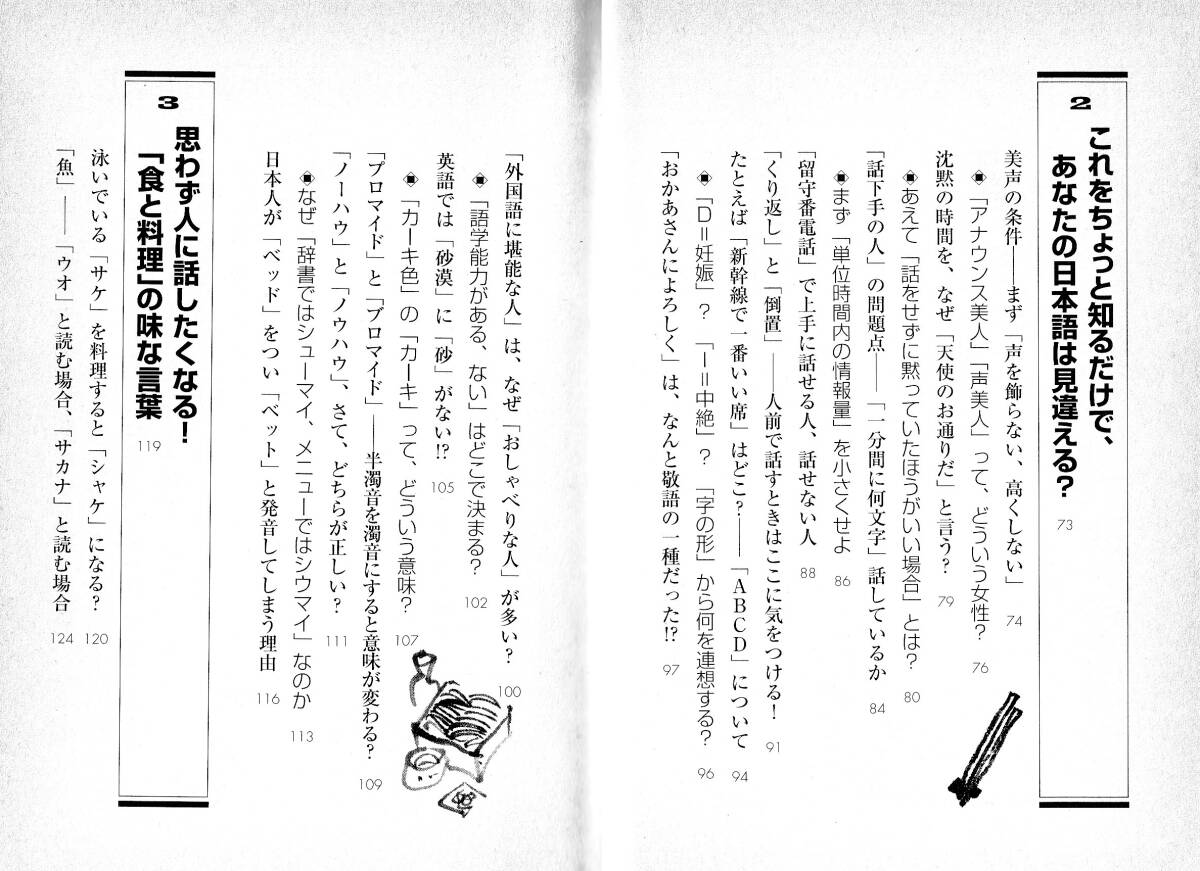 2
これをちょっと知るだけで、
あなたの日本語は見違える? 73
美声の条件——まず「声を飾らない、高くしない」 74
◈「アナウンス美人」「声美人」って、どういう女性? 76
沈黙の時間を、なぜ「天使のお通りだ」と言う? 79
◈あえて「話をせずに黙っていたほうがいい場合」とは? 80
「話下手の人」の問題点——「一分間に何文字」話しているか 84
◈まず「単位時間内の情報量」を小さくせよ 86
「留守番電話」で上手に話せる人、話せない人 88
「くり返し」と「倒置」——人前で話すときはここに気をつける! 91
たとえば「新幹線で一番いい席」はどこ?——「ABCD」について 94
◈「D＝妊娠」? 「I＝中絶」? 「字の形」から何を連想する? 96
「おかあさんによろしく」は、なんと敬語の一種だった!? 97
「外国語に堪能な人」は、なぜ「おしゃべりな人」が多い? 100
◈「語学能力がある、ない」はどこで決まる? 102
英語では「砂漠」に「砂」がない!? 105
◈「カーキ色」の「カーキ」って、どういう意味? 107
「プロマイド」と「ブロマイド」——半濁音を濁音にすると意味が変わる? 109
「ノーハウ」と「ノウハウ」、さて、どちらが正しい? 111
◈なぜ「辞書ではシューマイ、メニューではシウマイ」なのか 113
日本人が「ベッド」をつい「ベット」と発音してしまう理由 116
3
思わず人に話したくなる!
「食と料理」の味な言葉 119
泳いでいる「サケ」を料理すると「シャケ」になる? 120
「魚」——「ウオ」と読む場合、「サカナ」と読む場合 124